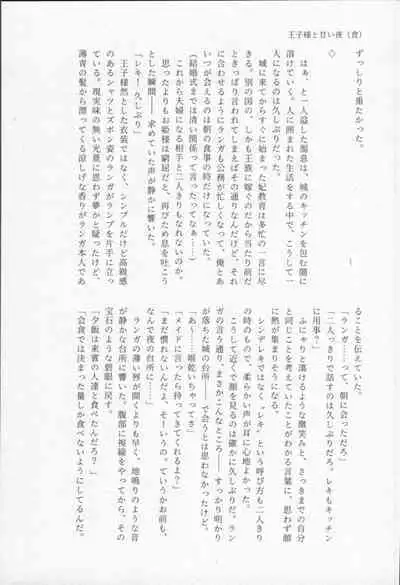 王子様と甘い夜(食)
ずっしりと重たかった。
◇
はぁ、と一人溢した溜息は、城のキッチンを包む闇に
溶けていく。人に囲まれた生活をする中で、こうして一
人になるのは久しぶりだった。
城に来てからすぐに始まった妃教育は多忙の一言に尽
きる。別の国の、しかも王族に嫁ぐのだから当たり前だ
ときっぱり言われてしまえばその通りなんだけど、それ
に合わせるようにランガも公務が忙しくなって、俺とあ
いつが会えるのは朝の食事の時だけになっていた。
(結婚式までは清い関係って言ったってなぁ……)
これから夫婦になる相手と二人きりもなれないのか。
思ったよりもお姫様は窮屈だと、再びため息を吐こう
とした瞬間──求めていた声が静かに響いた。
「レキ！久しぶり」
王子様然とした衣装ではなく、シンプルだけど高級感
のあるシャツとズボン姿のランガがランプを片手に立っ
ている。現実味の無い光景に思わず夢かと疑ったけど、
薄青の髪から漂ってくる涼しげな香りがランガ本人であ
ることを伝えていた。
「ランガ……って、朝に会っただろ」
「二人っきりで話すのは久しぶりだろ。レキもキッチン
に用事？」
ふにゃりと蕩けるような微笑みと、さっきまでの自分
と同じことを考えていたことがわかる言葉に、思わず顔
に熱が集まりそうになる。
シンデレキではなく〝レキ〟という呼び方も二人きり
の時のもので、柔らかい声が耳に心地よかった。
こうして近くで顔を見るのは確かに久しぶりだ。ラン
ガの言う通り、まさかこんなところ──すっかり明かり
が落ちた城の台所──で会うとは思わなかったけど。
「あ〜……喉乾いちゃってさ」
「メイドに言ったら持ってきてくれるよ？」
「まだ慣れないんだよ、そーいうの。ていうかお前も、
なんで夜の台所に……」
ランガの薄い唇が開くよりも早く、地鳴りのような音
が静かな台所に響いた。腹部に視線をやってから、その
宝石のような碧眼に戻す。
「夕飯は来賓の人達と食べたんだろ？」
「会食では決まった量しか食べないようにしてるんだ。